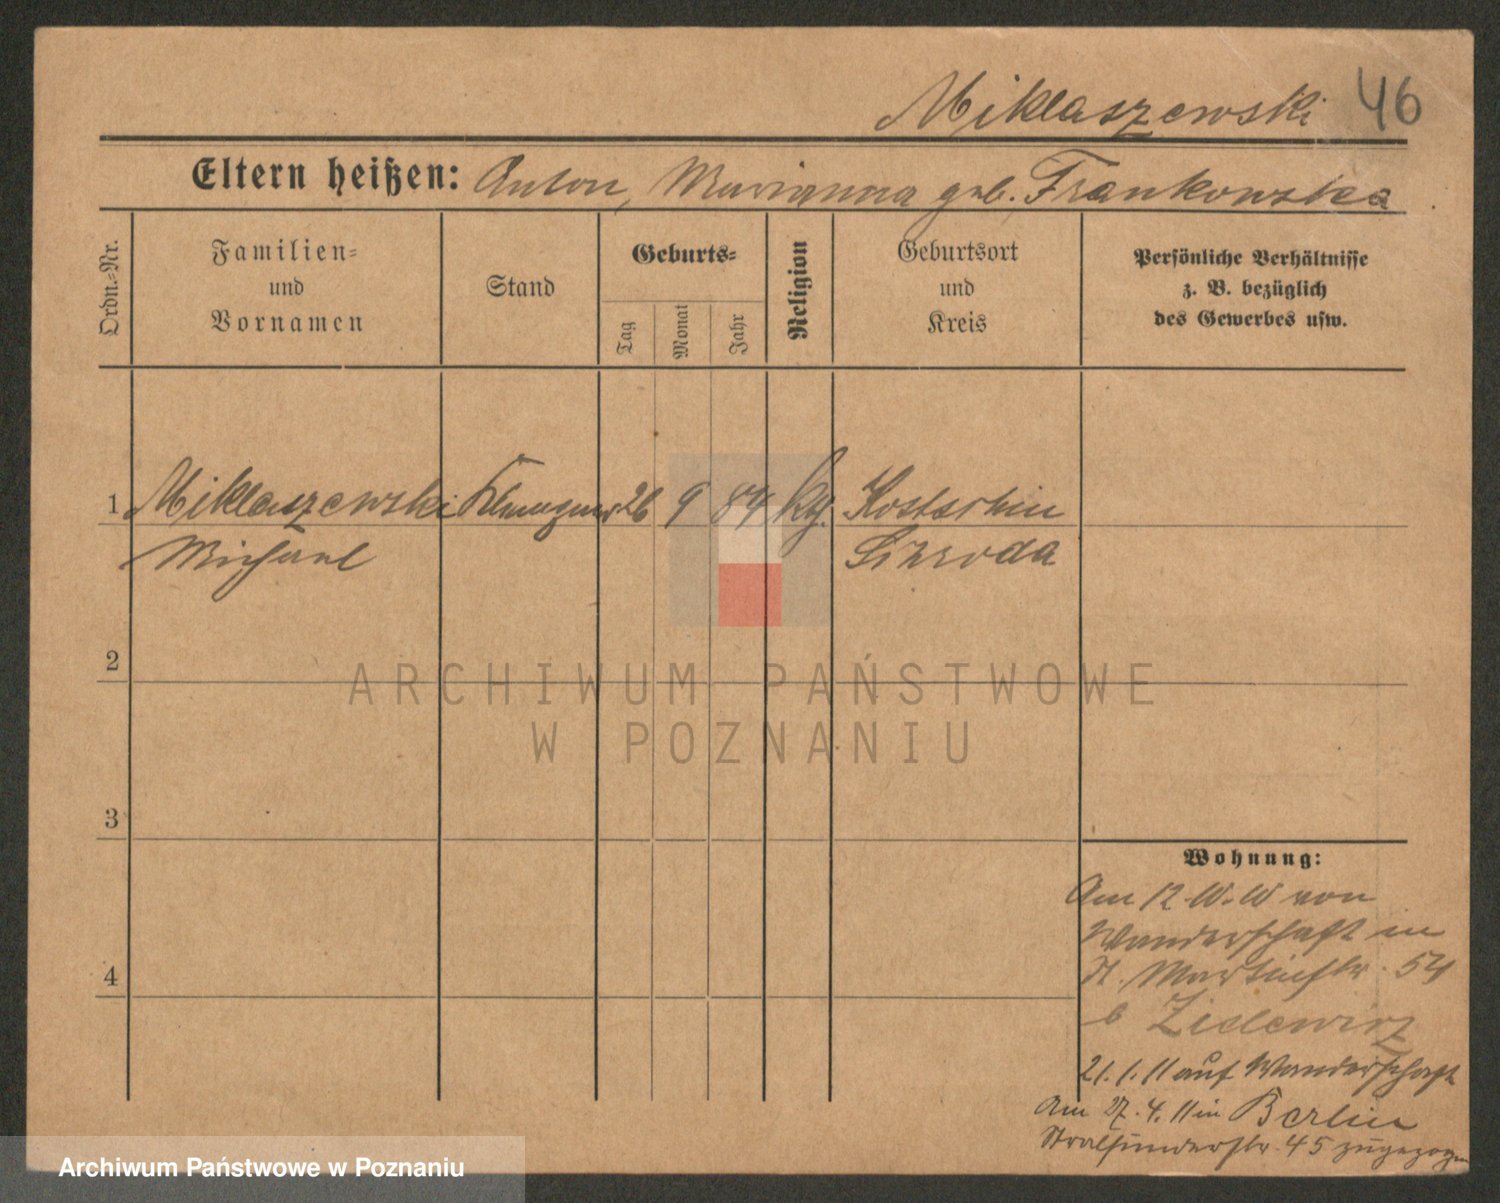 Miklaszewski 46
Eltern heißen: Anton, Marianna geb. Frankowska
Ordn.-Nr.
Familien-
und
Vornamen
Stand
Geburts-
Tag
Monat
Jahr
Religion
Geburtsort
und
Kreis
Persönliche Verhältnisse
z. B. bezüglich
des Gewerbes usw.
1 Miklaszewski Klempner 26 9 84 kth. Kostschin
Michael Schroda
2
ARCHIWUM PAŃSTWOWE
W POZNANIU
3
4
Wohnung:
Am 12. 10. 10 von
Wanderschaft in
St. Martinstr. 54
b
21. 1. 11 auf Wanderschaft
Am 27. 4. 11 in Berlin
Stralsunderstr. 45 zugezogen
Archiwum Państwowe w Poznaniu